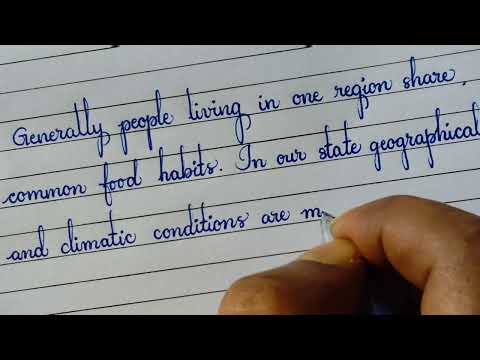 Generally people living in one region share
common food habits. In our state geographical
and climatic conditions are m